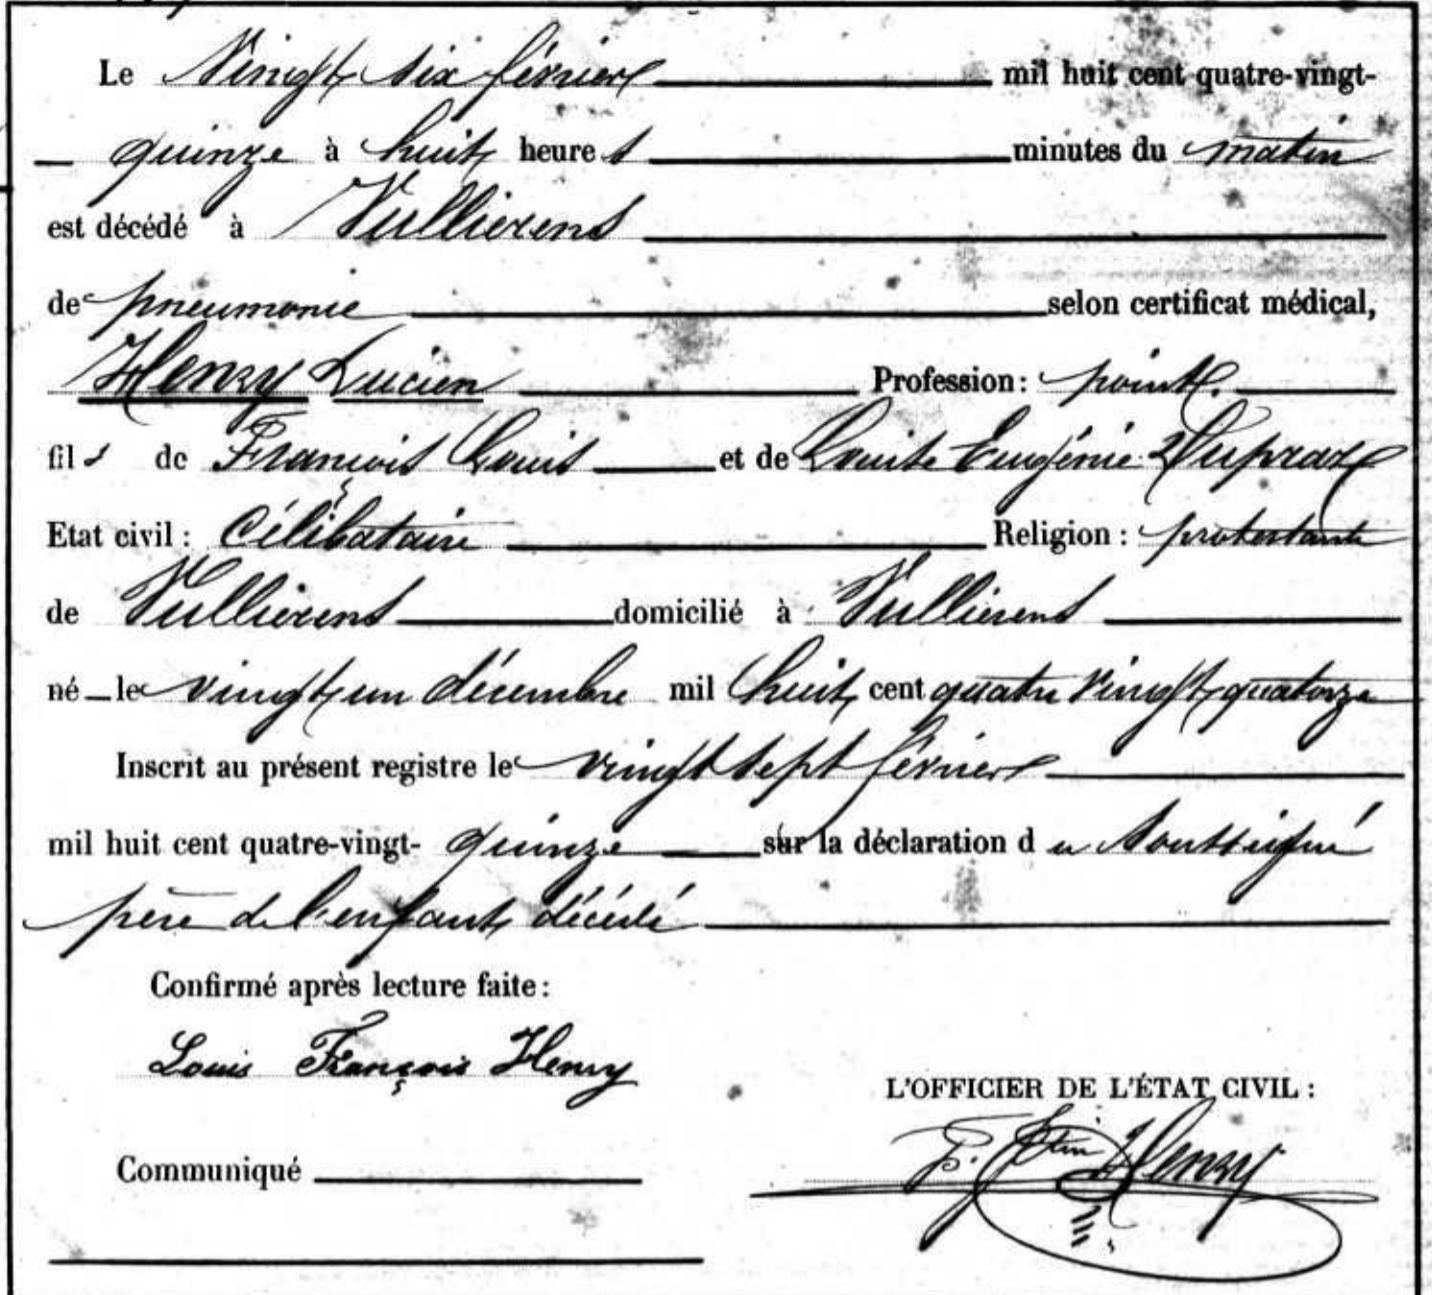 Le Vingt six février mil huit cent quatre-vingt-
quinze à huit heures minutes du matin
est décédé à Vullierens
de pneumonie selon certificat médical,
Henry Lucien Profession : point.
fils de François Louis et de Louise Eugénie Dupraz
Etat civil : Célibataire Religion : protestante
de Vullierens domicilié à Vullierens
né le vingt un décembre mil huit cent quatre vingt quatorze
Inscrit au présent registre le vingt sept février
mil huit cent quatre-vingt- quinze sur la déclaration du soussigné
père de l'enfant décédé
Confirmé après lecture faite :
Louis François Henry
L'OFFICIER DE L'ÉTAT CIVIL :
Henry
Communiqué